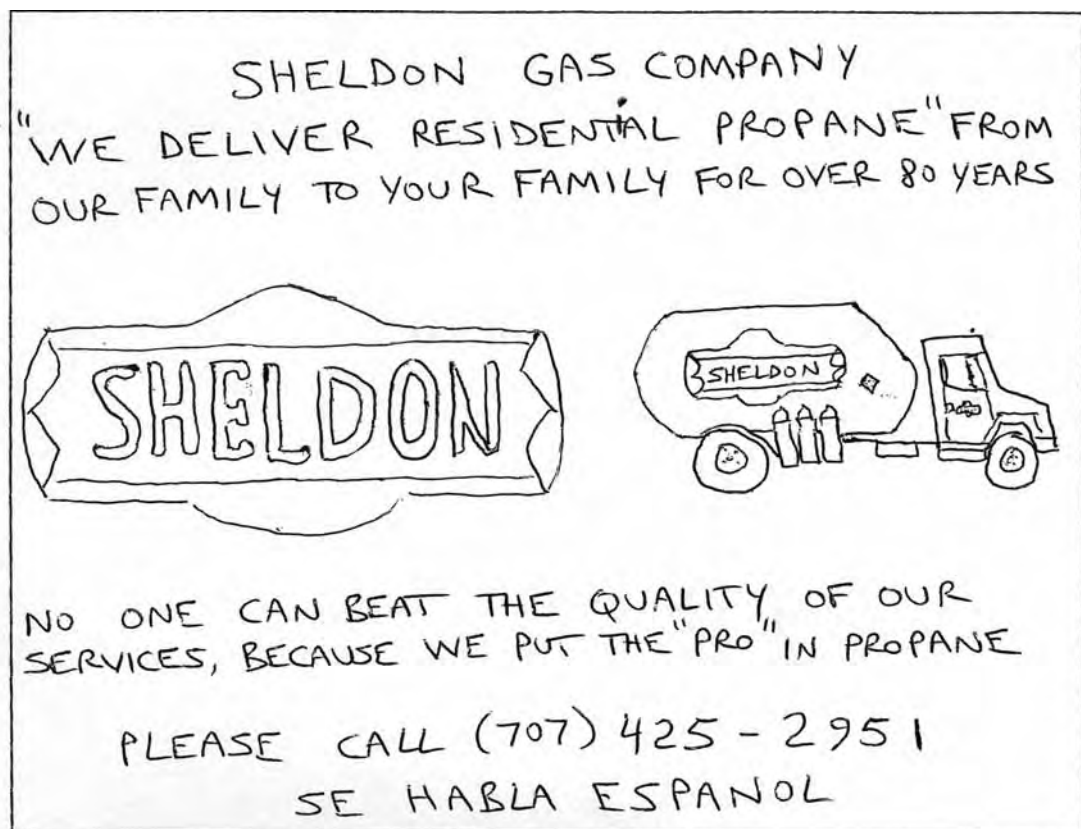 SHELDON GAS COMPANY
"WE DELIVER RESIDENTIAL PROPANE" FROM
OUR FAMILY TO YOUR FAMILY FOR OVER 80 YEARS
SHELDON
SHELDON
NO ONE CAN BEAT THE QUALITY OF OUR
SERVICES, BECAUSE WE PUT THE "PRO" IN PROPANE
PLEASE CALL (707) 425-2951
SE HABLA ESPANOL